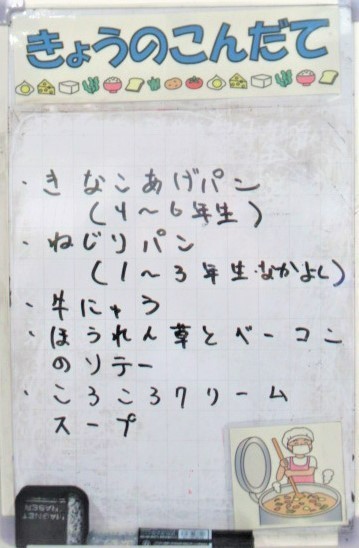 きょうのこんだて
・きなこあげパン
(4~6年生)
・ねじりパン
(1~3年生・なかよし)
・牛にゅう
・ほうれん草とベーコン
のソテー
・ころころクリーム
スープ
MAGNET
ERASER